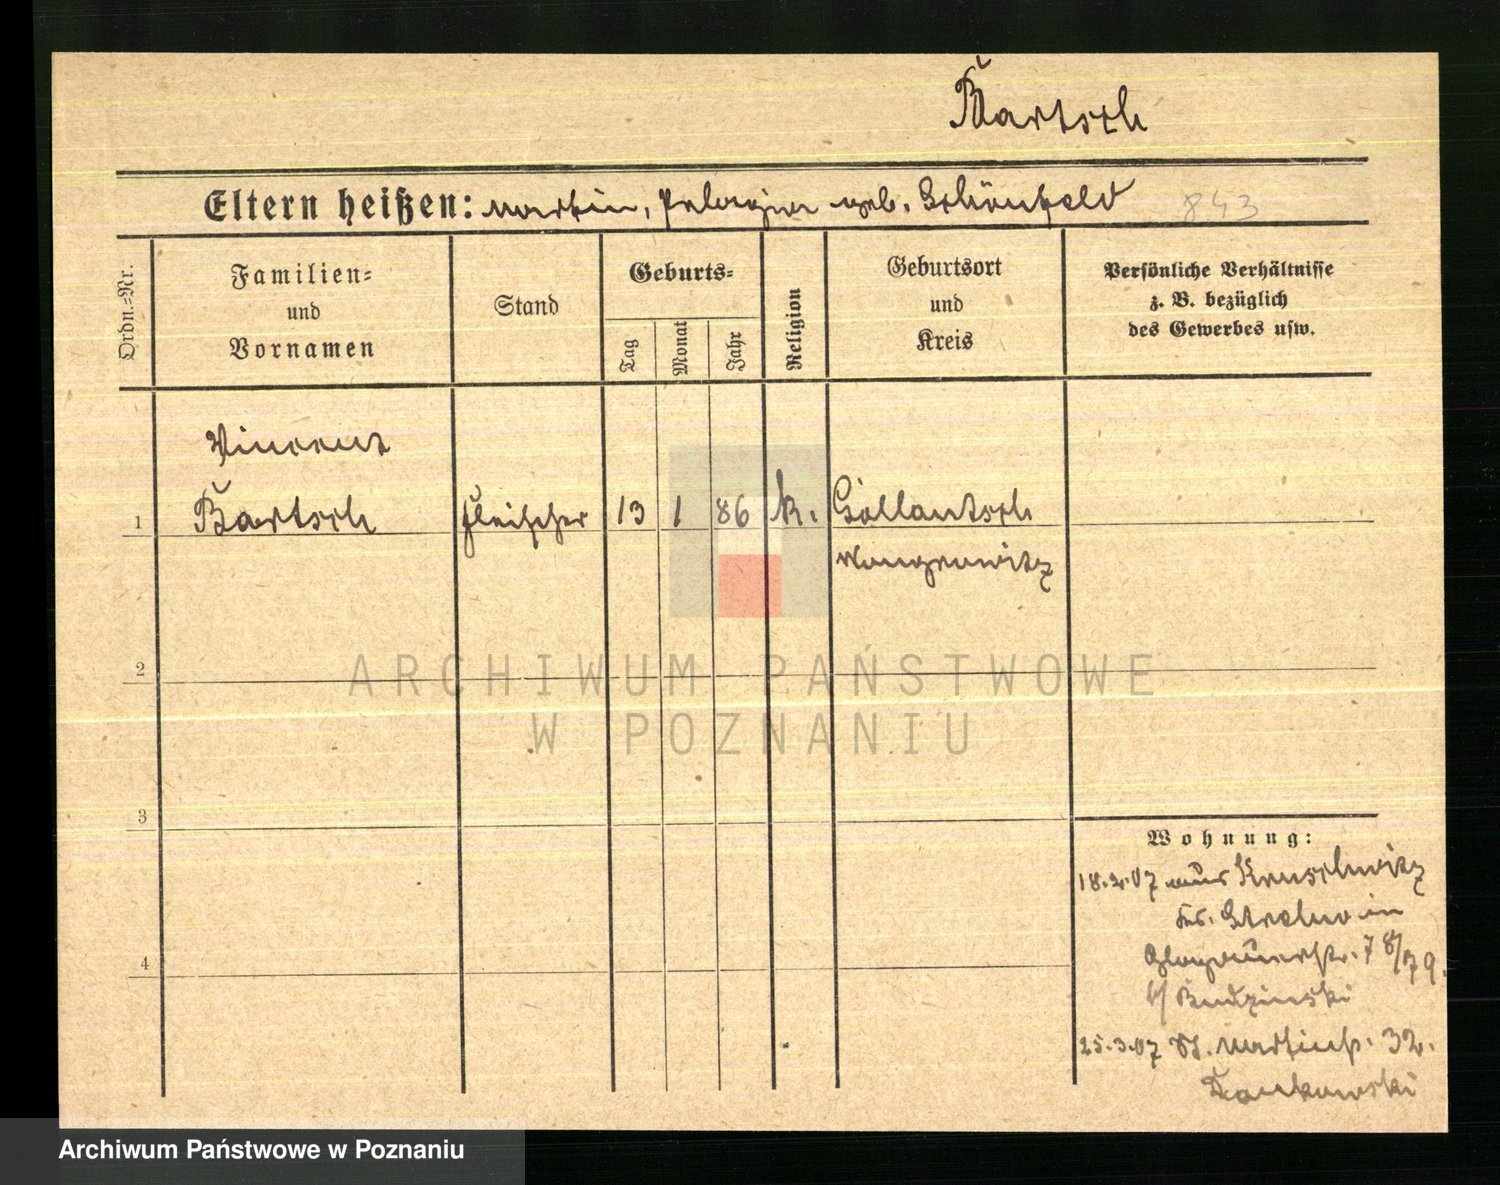 Bartsch
Eltern heißen: Martin, Pelagia geb. Schönfeld 843
Ordn.=Nr.
Familien=
und
Vornamen
Stand
Geburts=
Tag
Monat
Jahr
Religion
Geburtsort
und
Kreis
Persönliche Verhältnisse
z. B. bezüglich
des Gewerbes usw.
Vincent
1 Bartsch Fleischer 13 1 86 k. Gollantsch
Wongrowitz
2
ARCHIWUM PAŃSTWOWE
W POZNANIU
3
Wohnung:
18.2.07 aus Kruschwitz
Kr. Strelno in
Glogauerstr. 78/79.
b/ Budzinski
4
25.3.07 St. Martinstr. 32.
Jankowski
Archiwum Państwowe w Poznaniu